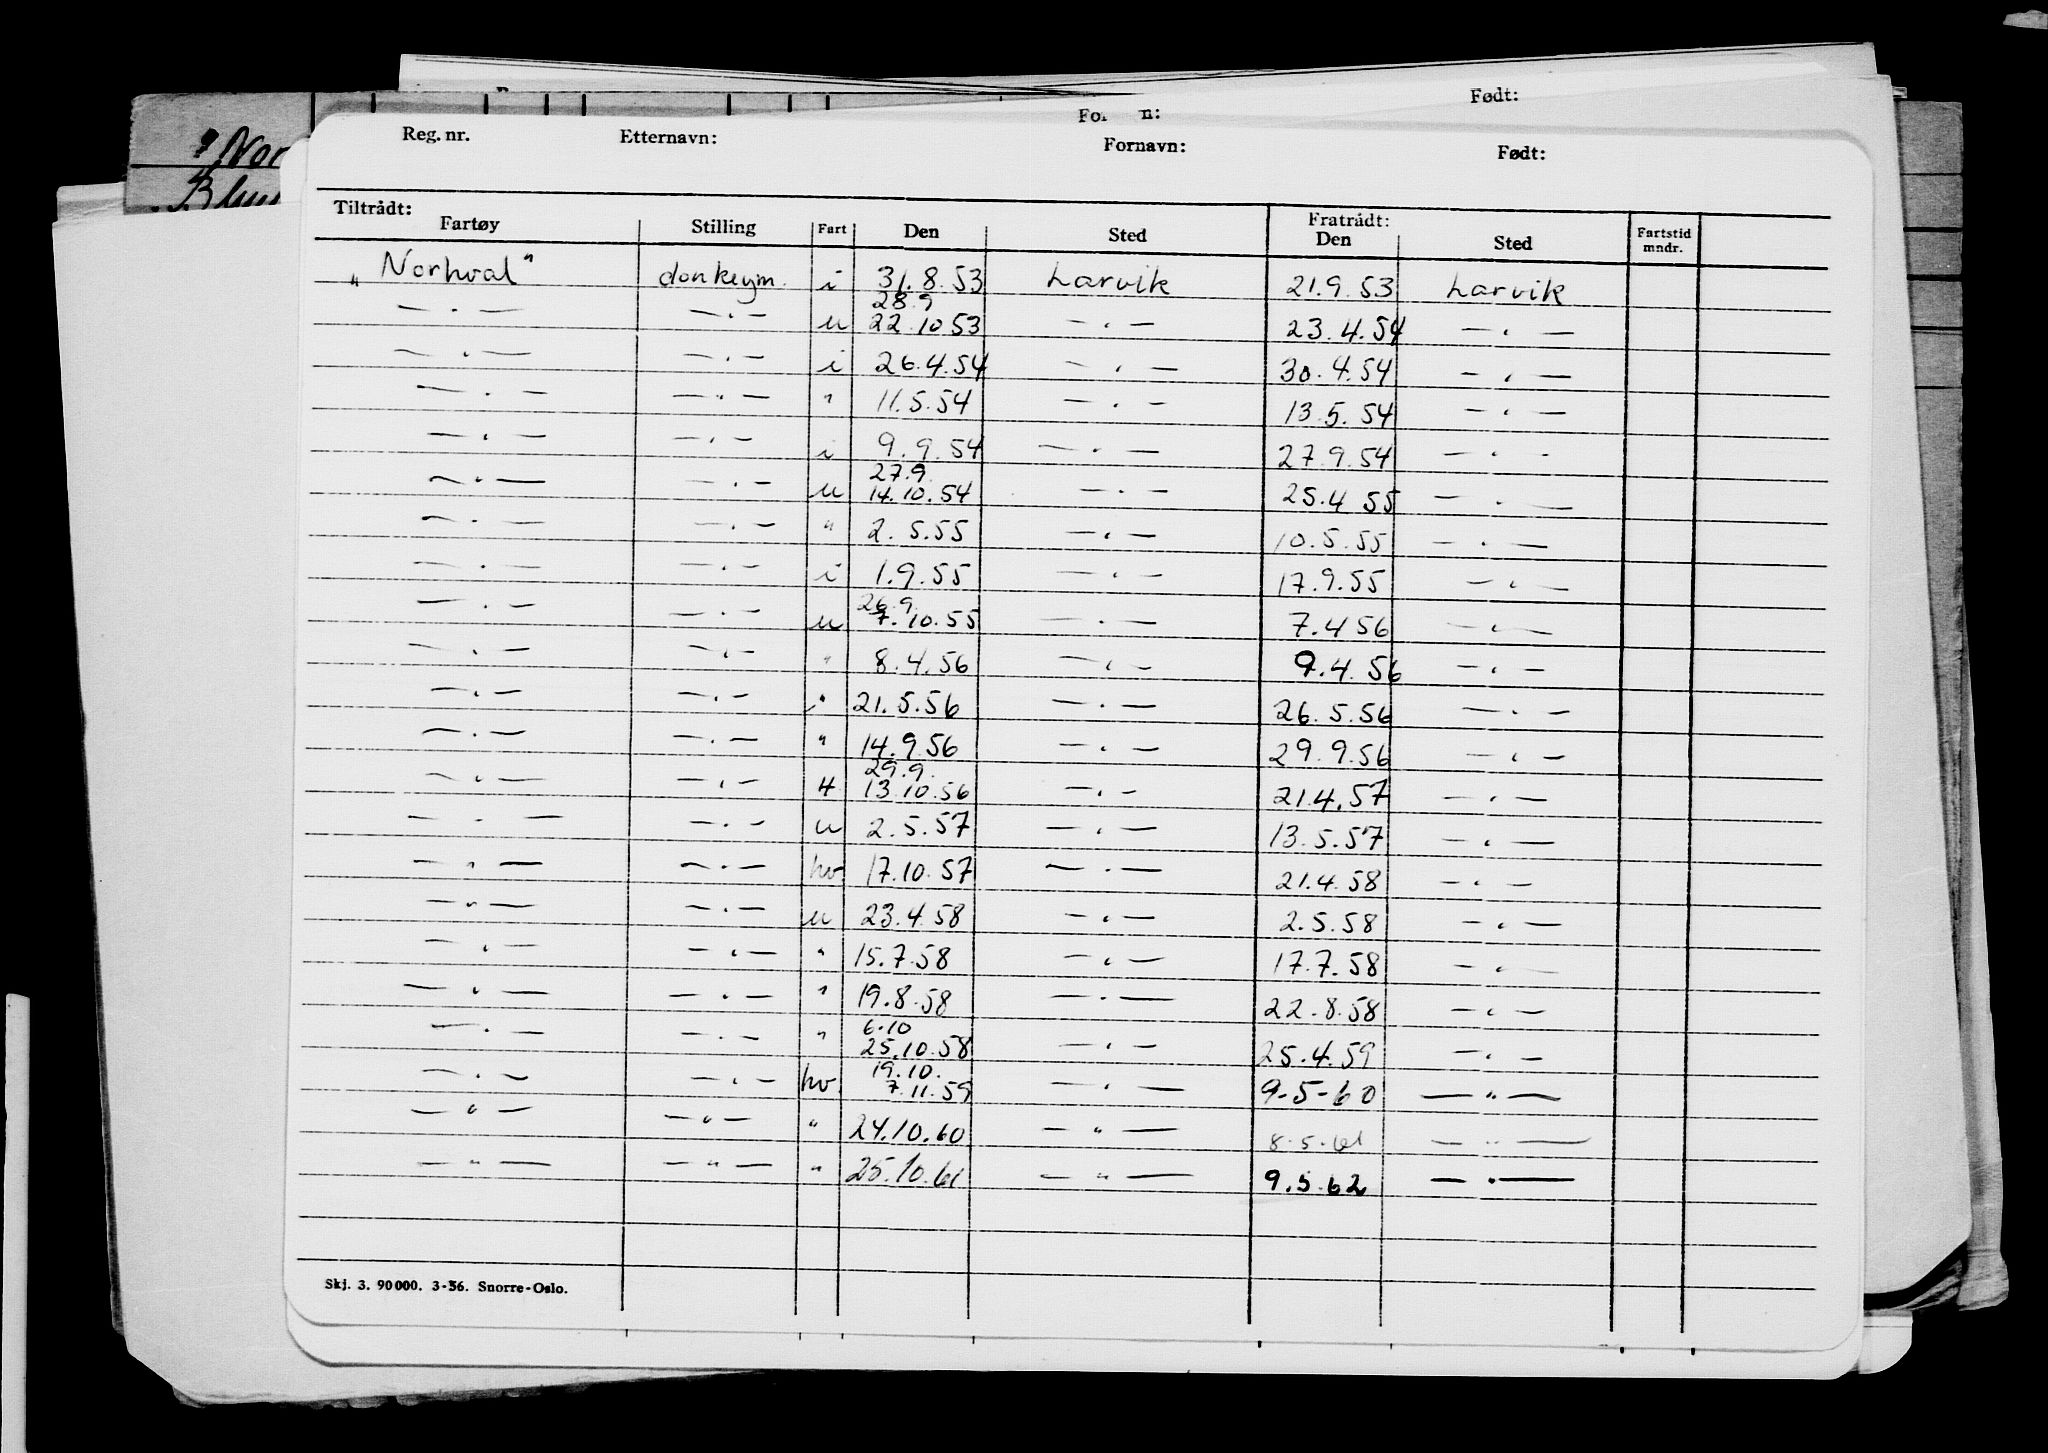 Født:
Reg. nr. Etternavn: Fornavn: Født:
Tiltrådt: Fratrådt:
Fartøy Stilling Fart Den Sted Den Sted Fartstid mndr.
"Norhval" donkeym. i 31.8.53 Larvik 21.9.53 Larvik
— " — — " — u 28.9 22.10 53 — " — 23.4.54 — " —
— " — — " — i 26.4.54 — " — 30.4.54 — " —
— " — — " — " 11.5.54 — " — 13.5.54 — " —
— " — — " — i 9.9.54 — " — 27.9.54 — " —
— " — — " — u 27.9. 14.10.54 — " — 25.4 55 — " —
— " — — " — " 2.5.55 — " — 10.5.55 — " —
— " — — " — i 1.9.55 — " — 17.9.55 — " —
— " — — " — u 26.9. 7.10.55 — " — 7.4 56 — " —
— " — — " — " 8.4.56 — " — 9.4.56 — " —
— " — — " — i 21.5.56 — " — 26.5.56 — " —
— " — — " — " 14.9.56 — " — 29.9.56 — " —
— " — — " — H 29.9. 13.10.56 — " — 21.4.57 — " —
— " — — " — u 2.5.57 — " — 13.5.57 — " —
— " — — " — hv. 17.10.57 — " — 21.4.58 — " —
— " — — " — u 23.4.58 — " — 2.5.58 — " —
— " — — " — " 15.7.58 — " — 17.7.58 — " —
— " — — " — " 19.8.58 — " — 22.8.58 — " —
— " — — " — " 6.10 25.10.58 — " — 25.4.59 — " —
— " — — " — hv. 19.10. 7.11.59 — " — 9-5-60 — " —
— " — — " — " 24.10.60 — " — 8.5.61 — " —
— " — — " — " 25.10.61 — " — 9.5.62 — " —
Skj. 3. 90000. 3-56. Snorre-Oslo.